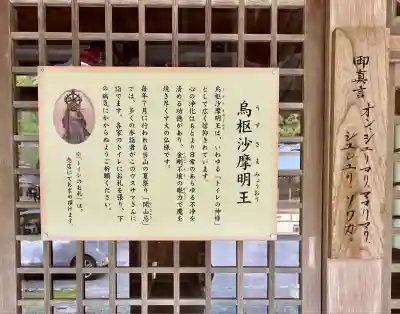 御真言
オン シュリ マリ ママリ マリ
シュシュリ ソワカ
うすさまみょうおう
烏枢沙摩明王
烏枢沙摩明王は、いわゆる「トイレの神様」
として広く信仰されています。
心の浄化はもとより日常のあらゆる不浄を
清める功徳があり、金剛不壊の眼力で魔を
焼き尽くす火の仏様です。
毎年7月に行われる当山の夏祭り「閻山忌」
では、多くの参詣者がこのウスサマさんに
詣でます。各家のトイレにお札を張り、下
の病気にかからぬようご祈願ください。
※「トイレのお札」は、
売店にてお求め頂けます。